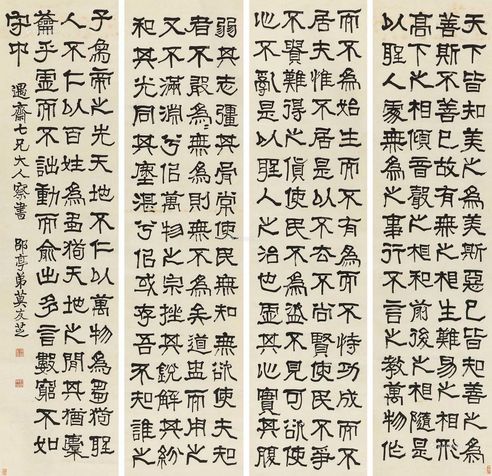 天下皆知美之為美斯惡已皆知善之為
善斯不善已故有無之相生難易之相形
高下之相傾音聲之相和前後之相隨是
以聖人處無為之事行不言之教萬物作
而不為始生而不有為而不恃功成而不
居夫惟不居是以不去不尚賢使民不爭
不貴難得之貨使民不為盜不見可欲使
心不亂是以聖人之治也虛其心實其腹
弱其志彊其骨常使民無知無欲使夫知
者不敢為無為則無不為矣道盅而用之
又不滿淵兮佀萬物之宗挫其銳解其紛
和其光同其塵湛兮佀或存吾不知誰之
子象帝之先天地不仁以萬物為芻狗聖
人不仁以百姓為芻狗天地之間其猶橐
籥乎虛而不詘動而俞出多言數窮不如
守中 遏齋七兄大人察書 郘亭弟莫友芝